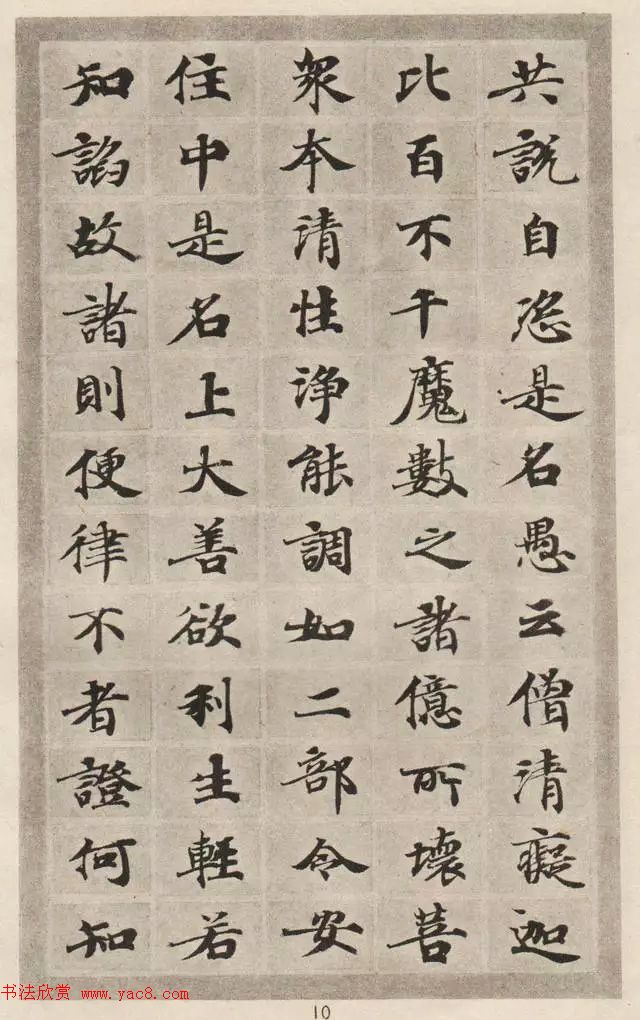 共説自恣是名愚云僧清癡迦
比百不千魔數之諸億所壞菩
衆本清性净能調如二部令安
住中是名上大善欲利生輕若
知諂故諸則便律不者證何知
书法欣赏 www.yac8.com
10